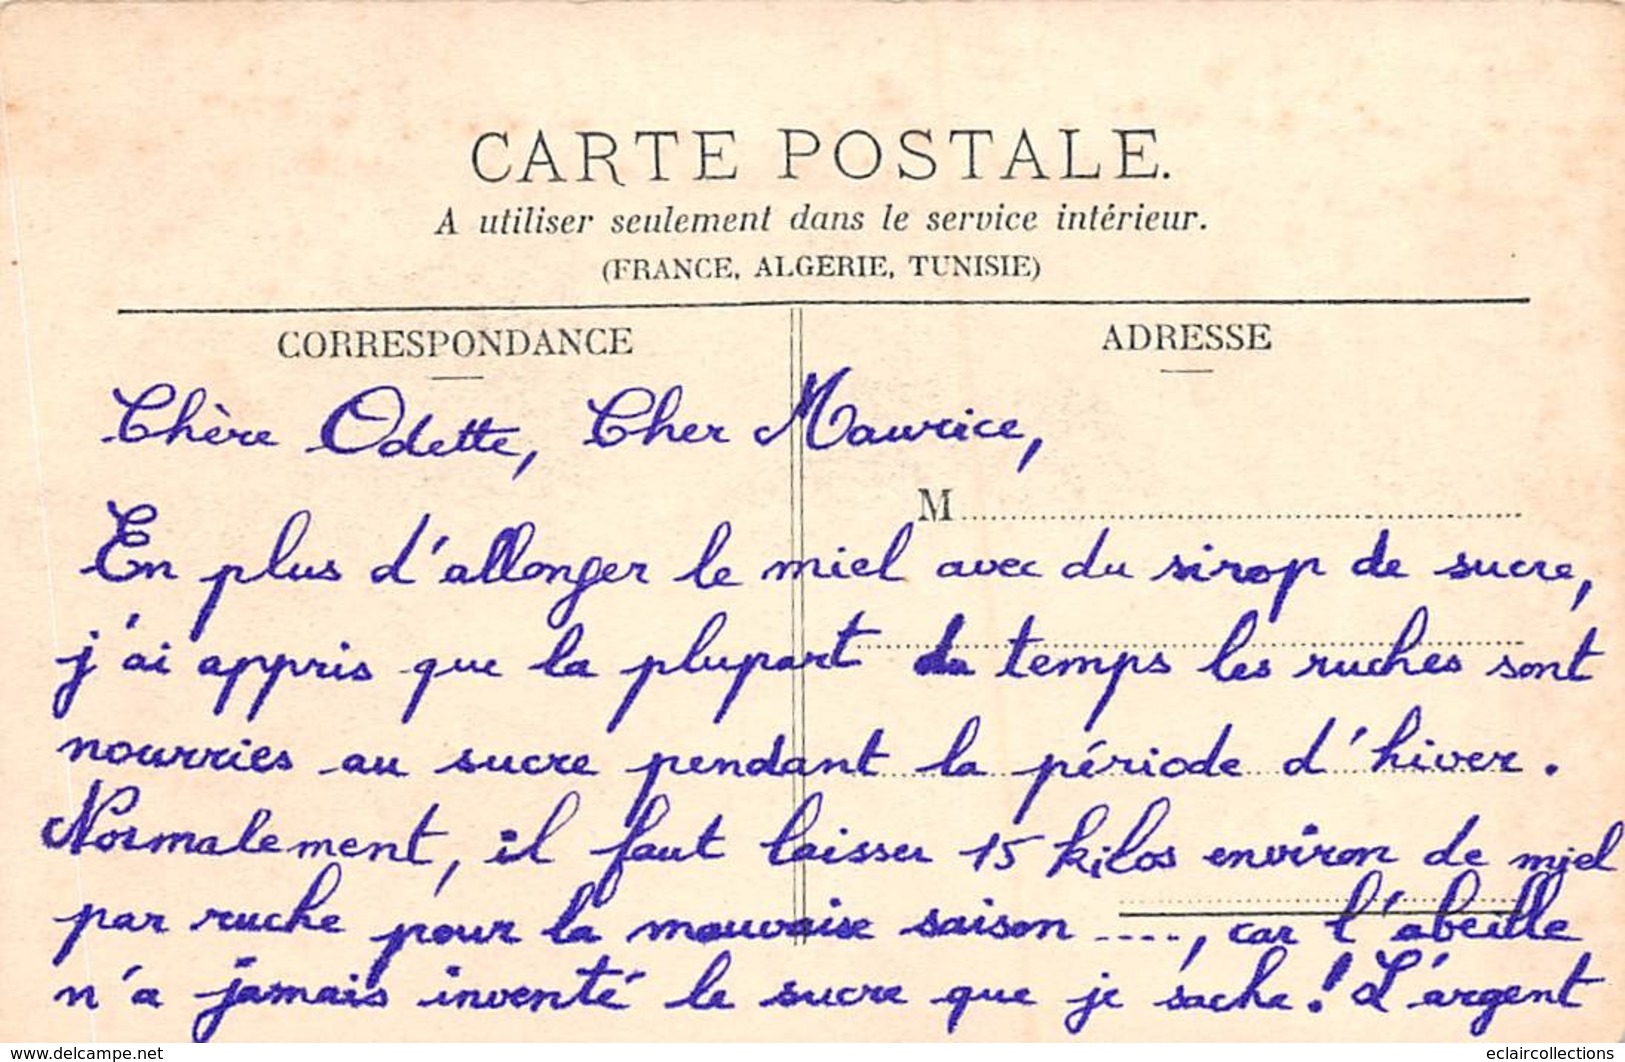 CARTE POSTALE.
A utiliser seulement dans le service intérieur.
(FRANCE, ALGERIE, TUNISIE)
CORRESPONDANCE
ADRESSE
Chère Odette, Cher Maurice,
M
En plus d'allonger le miel avec du sirop de sucre,
j'ai appris que la plupart du temps les ruches sont
nourries au sucre pendant la période d'hiver.
Normalement, il faut laisser 15 kilos environ de miel
par ruche pour la mauvaise saison ...., car l'abeille
n'a jamais inventé le sucre que je sache! L'argent
www.delcampe.net
eclaircollections